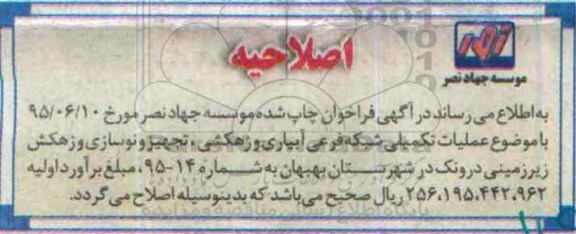 اصلاحیه
موسسه جهاد نصر
به اطلاع می رساند در آگهی فراخوان چاپ شده موسسه جهاد نصر مورخ ۹۵/۰۶/۱۰
با موضوع عملیات تکمیلی شبکه فرعی آبیاری و زهکشی ، تجهیز و نوسازی و زهکش
زیرزمینی درونک در شهرستان بهبهان به شماره ۱۴-۹۵، مبلغ برآورد اولیه
۲۵۶،۱۹۵،۴۴۲،۹۶۲ ریال صحیح می باشد که بدینوسیله اصلاح می گردد.